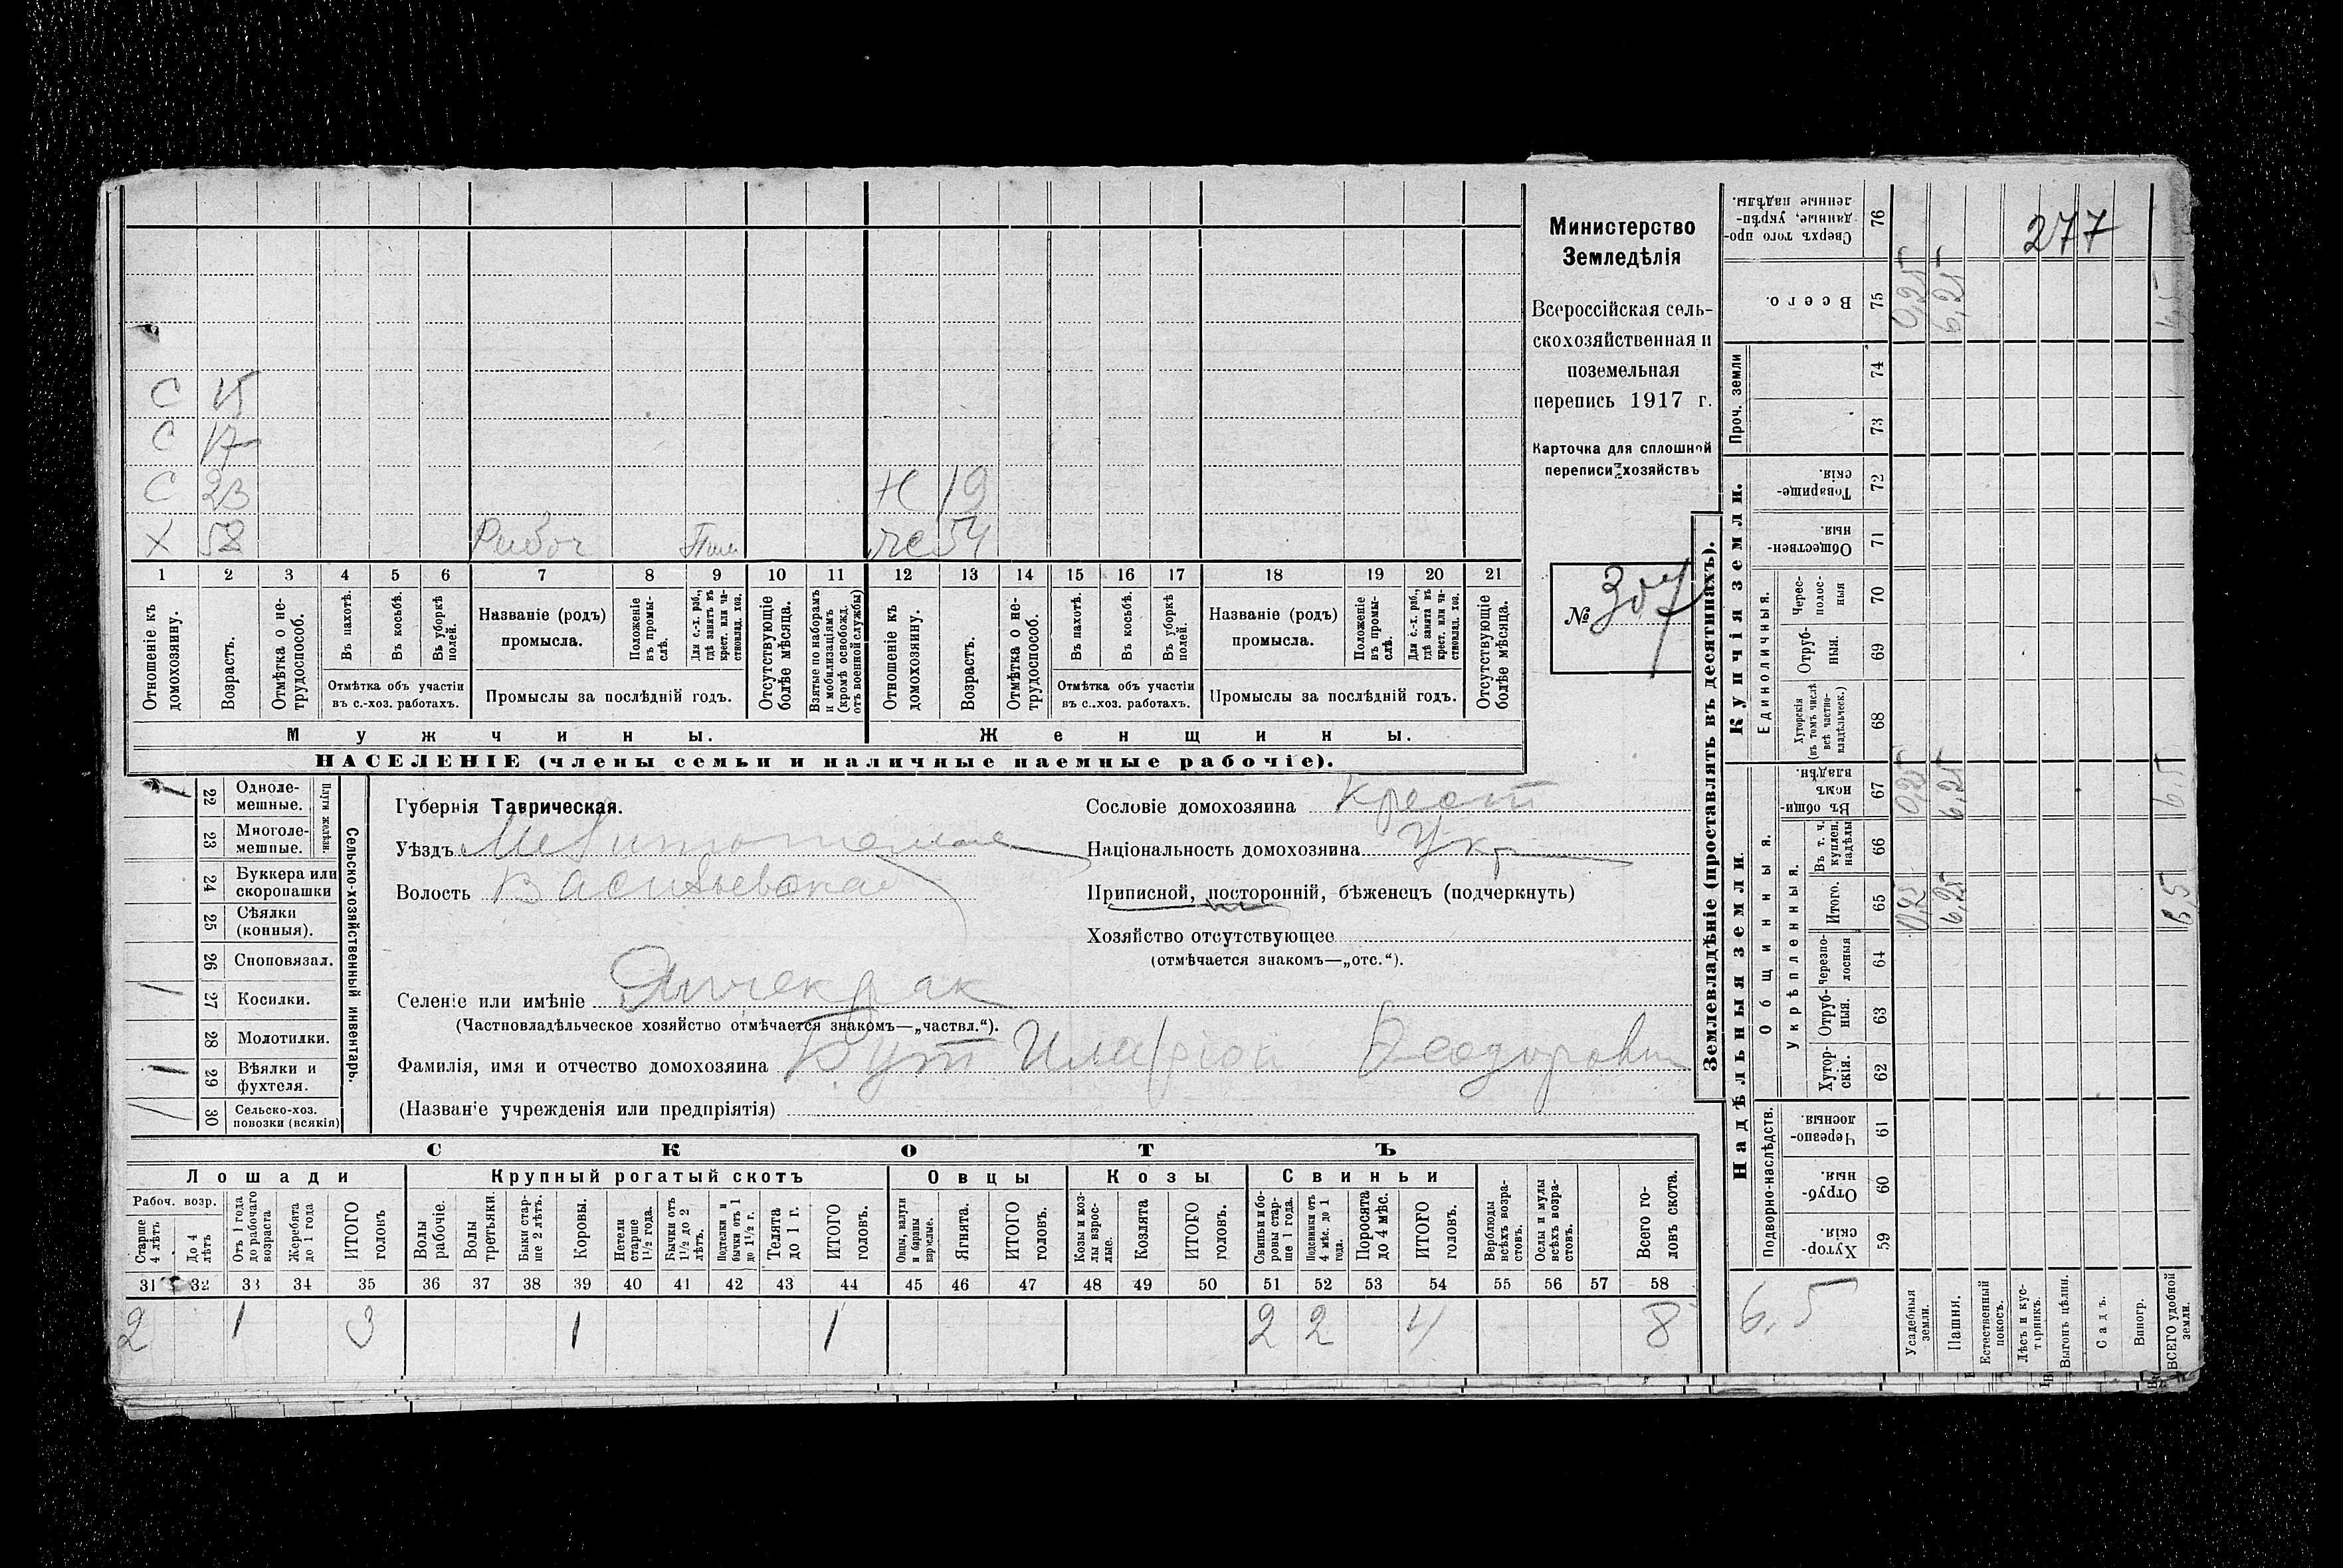 С 15
С 17
С 23 Н 19
Х 58 54
1 2 3 4 5 6 7 8 9 10 11 12 13 14 15 16 17 18 19 20 21
Отношеніе къ домохозяину.
Возрастъ.
Отмѣтка о не-
трудоспособ.
Въ пахотѣ.
Въ косьбѣ.
Въ уборкѣ полей.
Отмѣтка объ участіи
въ с.-хоз. работахъ.
Названіе (родъ)
промысла.
Положеніе въ промы-
слѣ.
Для с.-х. раб., гдѣ занятъ въ крест. или ча-
стновлад. хоз.
Промыслы за послѣдній годъ.
Отсутствующіе болѣе мѣсяца.
Взятые по наборамъ и мобилизаціямъ (кромѣ освобожд. отъ военной службы)
Отношеніе къ домохозяину.
Возрастъ.
Отмѣтка о не-
трудоспособ.
Въ пахотѣ.
Въ косьбѣ.
Въ уборкѣ полей.
Отмѣтка объ участіи
въ с.-хоз. работахъ.
Названіе (родъ)
промысла.
Положеніе въ промы-
слѣ.
Для с.-х. раб., гдѣ занята въ крест. или ча-
стновлад. хоз.
Промыслы за послѣдній годъ.
Отсутствующіе болѣе мѣсяца.
Мужчины. Женщины.
НАСЕЛЕНІЕ (члены семьи и наличные наемные рабочіе).
Министерство
Земледѣлія
Всероссійская сель-
скохозяйственная и
поземельная
перепись 1917 г.
Карточка для сплошной
переписи хозяйствъ
№ 307
Сельско-хозяйственный инвентарь.
Плуги желѣзн.
22 Одноле-
мешные.
23 Многоле-
мешные.
24 Буккера или
скоропашки
25 Сѣялки
(конныя).
26 Сноповязал.
27 Косилки.
28 Молотилки.
29 Вѣялки и
фухтеля.
30 Сельско-хоз.
повозки (всякія)
Губернія Таврическая.
Уѣздъ
Волость Васильевская
Селеніе или имѣніе Янчекрак
(Частновладѣльческое хозяйство отмѣчается знакомъ—„частвл.“).
Фамилія, имя и отчество домохозяина Бут Иларіон Феодорович
(Названіе учрежденія или предпріятія)
Сословіе домохозяина Крест
Національность домохозяина Укр
Приписной, посторонній, бѣженецъ (подчеркнуть)
Хозяйство отсутствующее
(отмѣчается знакомъ—„отс.“).
СКОТЪ
Лошади Крупный рогатый скотъ Овцы Козы Свиньи
Рабоч. возр.
Старше 4 лѣтъ
До 4 лѣтъ
Отъ 1 года до рабочаго возраста
Жеребята до 1 года
ИТОГО головъ
Волы рабочіе.
Волы третьяки.
Быки стар-
ше 2 лѣтъ.
Коровы.
Нетели старше 1½ года.
Бычки отъ 1½ до 2 лѣтъ.
Подтелки и бычки отъ 1 до 1½ г.
Телята до 1 г.
ИТОГО головъ.
Овцы, валухи и бараны взрослые.
Ягнята.
ИТОГО головъ.
Козы и коз-
лы взрос-
лые.
Козлята
ИТОГО головъ.
Свиньи и бо-
ровы стар-
ше 1 года.
Подсвинки отъ 4 мѣс. до 1 года.
Поросята до 4 мѣс.
ИТОГО головъ.
Верблюды всѣхъ возра-
стовъ.
Ослы и мулы всѣхъ возра-
стовъ.
Всего го-
ловъ скота.
31 32 33 34 35 36 37 38 39 40 41 42 43 44 45 46 47 48 49 50 51 52 53 54 55 56 57 58
2 1 3 1 1 2 2 4 8
277
Землевладѣніе (проставлять въ десятинахъ).
Надѣльныя земли
Подворно-наслѣдств.
Хутор-
скія. 59
Отруб-
ныя. 60
Черезпо-
лосныя 61
Общинныя.
Укрѣпленныя.
Хутор-
скія. 62
Отруб-
ныя. 63
Черезпо-
лосныя 64
Итого. 65 0,25 6,25 6,5
Въ т. ч. куплен. надѣлы 66
Въ общи-
номъ владѣн. 67 0,25 6,25 6,5
Купчія земли.
Единоличныя.
Хуторскія (въ томъ числѣ всѣ частно-
владѣльческ.) 68
Отруб-
ныя. 69
Черес-
полос-
ныя 70
Обществен-
ныя. 71
Товарище-
скія. 72
Проч. земли
73
74
Всего. 75 0,25 6,25
Сверхъ того про-
данные, укрѣп-
ленные надѣлы. 76
6,5
Усадебныя земли.
Пашня.
Естественный покосъ.
Лѣсъ и кус-
тарникъ.
Выгонъ цѣлин.
Садъ.
Виногр.
ВСЕГО удобной земли.